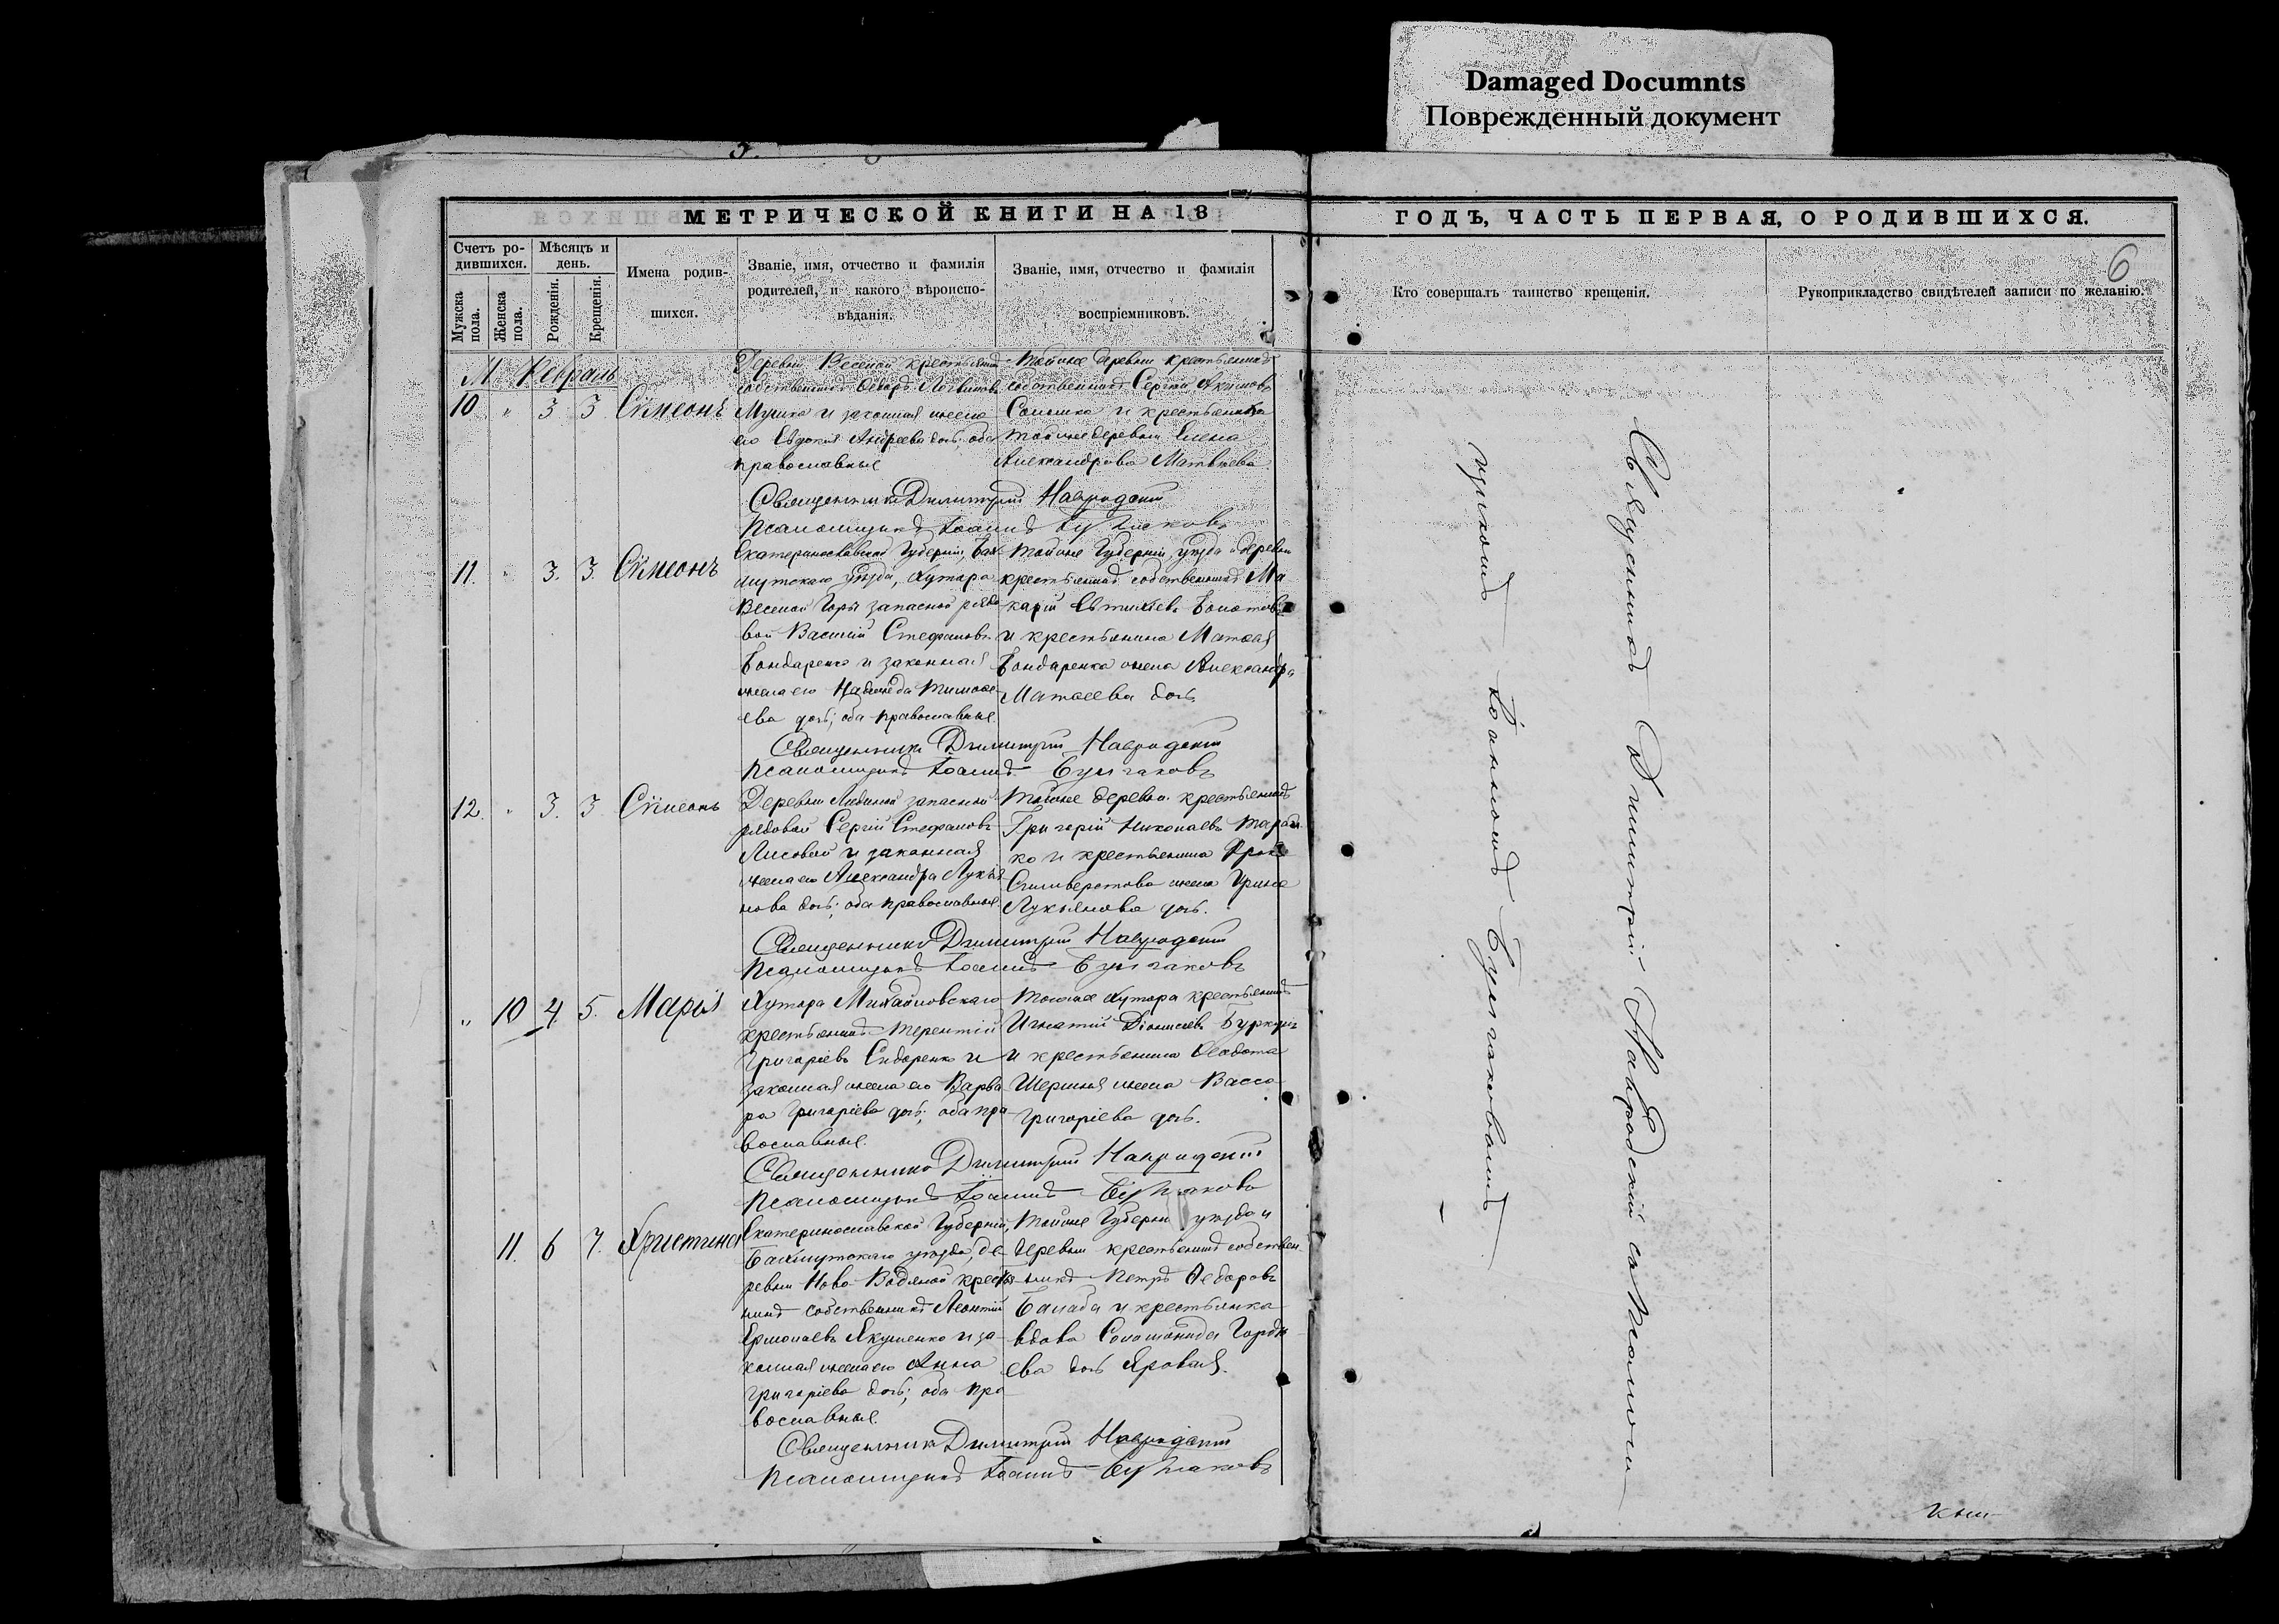 Damaged Documnts
Поврежденный документ
МЕТРИЧЕСКОЙ КНИГИ НА 18
ГОДЪ, ЧАСТЬ ПЕРВАЯ, О РОДИВШИХСЯ.
6
Счетъ ро-
дившихся.
Мужска пола.
Женска пола.
Мѣсяцъ и
день.
Рожденія.
Крещенія.
Имена родив-
шихся.
Званіе, имя, отчество и фамилія
родителей, и какого вѣроиспо-
вѣданія.
Званіе, имя, отчество и фамилія
воспріемниковъ.
Кто совершалъ таинство крещенія.
Рукоприкладство свидѣтелей записи по желанію.
М. Февраль
10 " 3 3 Сѵмеонъ
Деревни Веселой крестьянинъ
собственникъ Ѳеодоръ
и законная жена
его Евдокія Андреева дочь; оба
православные
Тойже деревни крестьянинъ
собственникъ Сергій Акимовъ
и крестьянка
тойже деревни Елена
Александрова Матвѣева
Священникъ Димитрій Навродскій
Псаломщикъ Іоаннъ Булгаковъ
11. " 3. 3. Сѵмеонъ
Екатеринославской Губерніи, Бах-
мутскаго уѣзда, Хутора
Веселой Горы запасной рядо-
вой Василій Стефановъ
Бондаренко и законная
жена его Надежда Тимоѳе-
ева дочь; оба православные.
Тойже Губерніи, уѣзда и деревни
крестьянинъ собственникъ Ма-
карій Евтихіевъ Болотовъ
и крестьянина Матѳея
Бондаренка жена Александра
Матѳеева дочь
Священникъ Димитрій Навродскій
Псаломщикъ Іоаннъ Булгаковъ
12. " 3. 3 Сѵмеонъ
Деревни запасной
рядовой Сергій Стефановъ
Лисовой и законная
жена его Александра Лукія-
нова дочь; оба православные.
Тойже деревни крестьянинъ
Григорій Николаевъ
ко и крестьянина
Сильверстова жена Ирина
Лукьянова дочь.
Священникъ Димитрій Навродскій
Псаломщикъ Іоаннъ Булгаковъ
" 10 4. 5. Марія
Хутора Михайловскаго
крестьянинъ Терентій
Григоріевъ Сидоренко и
законная жена его Варва-
ра Григоріева дочь; оба пра-
вославные.
Тогоже хутора крестьянинъ
Игнатій Діонисіевъ
и крестьянина Ѳеодота
жена Васса
Григоріева дочь.
Священникъ Димитрій Навродскій
Псаломщикъ Іоаннъ Булгаковъ
11. 6 7. Христина
Екатеринославской Губерніи,
Бахмутскаго уѣзда, де-
ревни Ново Водяной кресть-
нинъ собственникъ Леонтій
Ермолаевъ Якушенко и за-
конная жена его Анна
Григоріева дочь; оба пра-
вославные.
Тойже Губерніи уѣзда и
деревни крестьянинъ собствен-
никъ Петръ Ѳедоровъ
Балаба и крестьянка
вдова Соломонида Гордѣ-
ева дочь Яровая.
Священникъ Димитрій Навродскій
Псаломщикъ Іоаннъ Булгаковъ
Священникъ Димитрій Навродскій съ Псаломщи-
комъ Іоанномъ Булгаковымъ